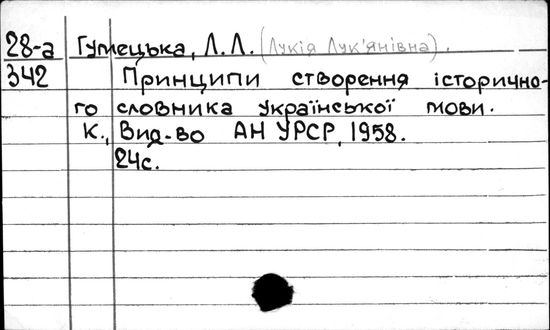 28-а Гумецька, Л.Л. (Лукія Лук'янівна).
342 Принципи створення історично-
го словника української мови.
К., Вид-во АН УРСР, 1958.
24с.